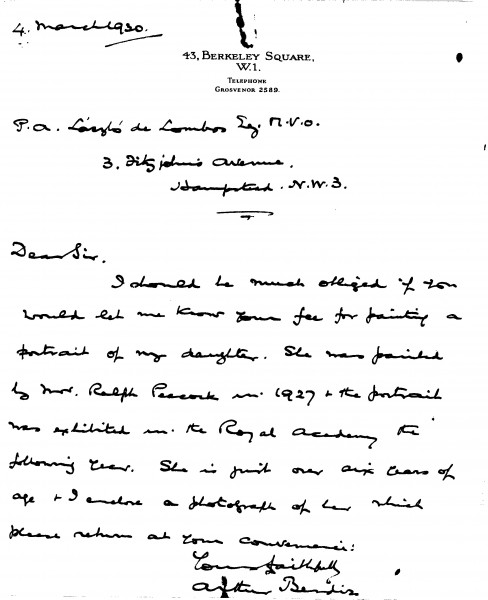 4. March 1930.
43, BERKELEY SQUARE,
W.1.
TELEPHONE
GROSVENOR 2589.
P. A. László de Lombos Esq. M.V.O.
3. Fitzjohn's Avenue.
Hampstead. N.W.3.
Dear Sir.
I should be much obliged if you
would let me know your fee for painting a
portrait of my daughter. She was painted
by Mr. Ralph Peacock in 1927 & the portrait
was exhibited in the Royal Academy the
following year. She is just over six years of
age & I enclose a photograph of her which
please return at your convenience:
Yours faithfully
Arthur Bendir